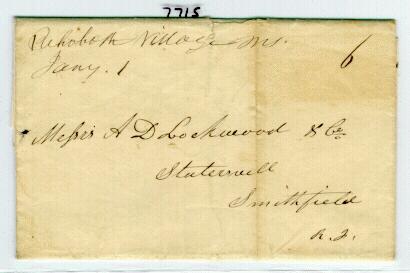 7715
Rehoboth Village Ms.
Jany. 1
6
Messrs A D Lockwood & Co
Slatersvill
Smithfield
R. I.